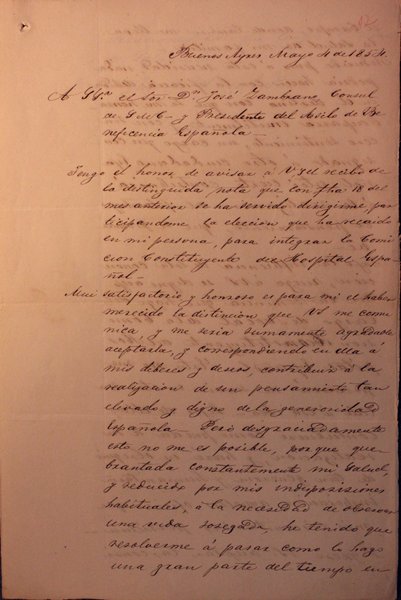 Buenos Ayres Mayo 4 de 1854.
A S Sria el Sor Dn José Zambrano Consul
de S. M. C. y Presidente del Asilo de Be-
neficencia Española—
Tengo el honor de avisar á VS el recibo de
la distinguida nota que con fha 18 del
mes anterior se ha servido dirigirme par-
ticipandome la eleccion que ha recaido
en mi persona, para integrar la Comi-
cion Constituyente del Hospital Espa-
ñol—
Mui satisfactorio y honroso es para mi el haber
merecido la distincion que VS me comu-
nica, y me seria sumamente agradable
aceptarla, y correspondiendo en ella a
mis deberes y deseos, contribuir á la
realizacion de un pensamiento tan
elevado y digno de la generosidad
Española— Pero desgraciadamente
esto no me es posible, porque que-
brantada constantemente mi salud,
y reducido por mis indisposiciones
habituales, á la necesidad de observar
una vida sosegada, he tenido que
resolverme á pasar como lo hago
una gran parte del tiempo en